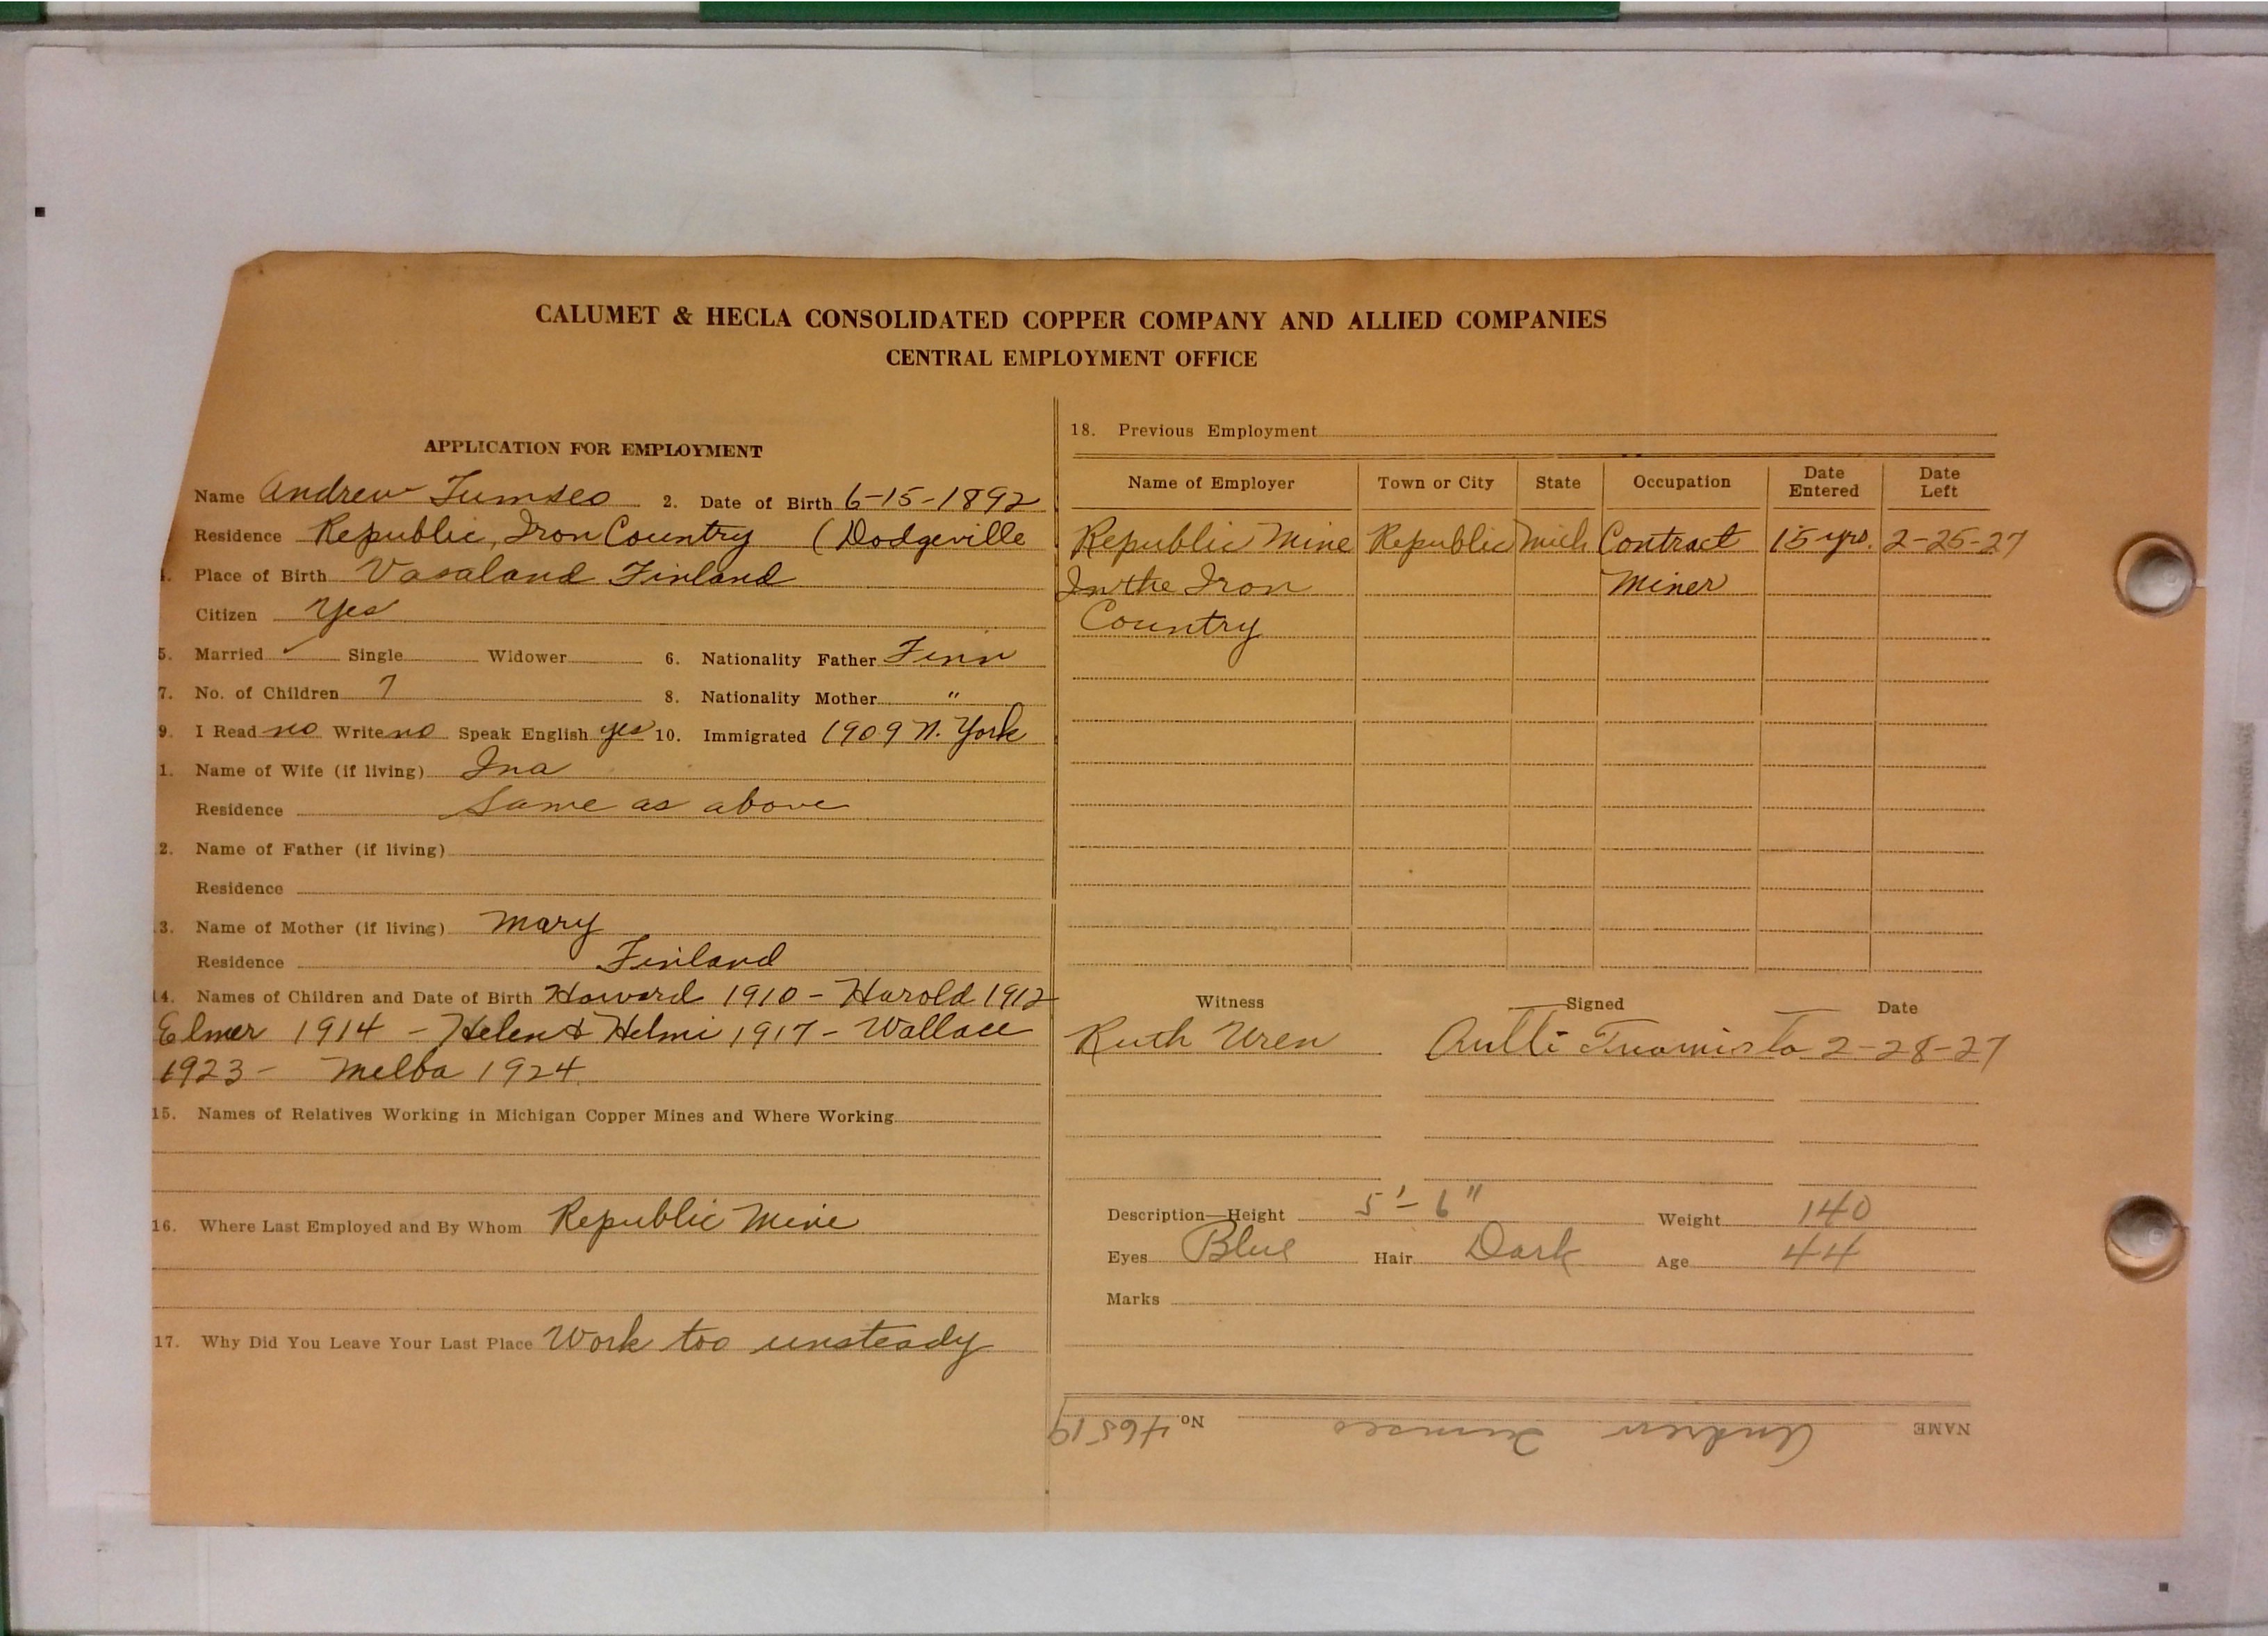 CALUMET & HECLA CONSOLIDATED COPPER COMPANY AND ALLIED COMPANIES
CENTRAL EMPLOYMENT OFFICE
APPLICATION FOR EMPLOYMENT
Name Andrew Tumseo 2. Date of Birth 6-15-1892
Residence Republic, Iron Country (Dodgeville
Place of Birth Vasaland Finland
Citizen Yes
5. Married ✓ Single Widower 6. Nationality Father Finn
7. No. of Children 7 8. Nationality Mother "
9. I Read no Write no Speak English yes 10. Immigrated 1909 N. York
1. Name of Wife (if living) Ina
Residence Same as above
2. Name of Father (if living)
Residence
3. Name of Mother (if living) Mary
Residence Finland
14. Names of Children and Date of Birth Howard 1910 - Harold 1912
Elmer 1914 - Helen & Helmi 1917 - Wallace
1923 - Melba 1924
15. Names of Relatives Working in Michigan Copper Mines and Where Working
16. Where Last Employed and By Whom Republic Mine
17. Why Did You Leave Your Last Place Work too unsteady
18. Previous Employment
Name of Employer Town or City State Occupation Date Entered Date Left
Republic Mine Republic Mich Contract 15 yrs. 2-25-27
In the Iron Miner
Country
Witness Signed Date
Ruth Uren Antti Tuomisto 2-28-27
Description—Height 5'-6" Weight 140
Eyes Blue Hair Dark Age 44
Marks
NAME Andrew Tumseo No. 46519